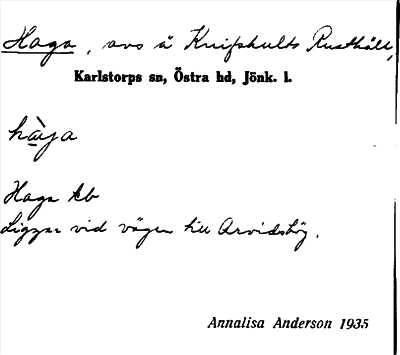 Haga, avs å Knifshults Rusthåll,
Karlstorps sn, Östra hd, Jönk. l.
hàga
Haga kb
Ligger vid vägen till Arvidshög.
Annalisa Anderson 1935